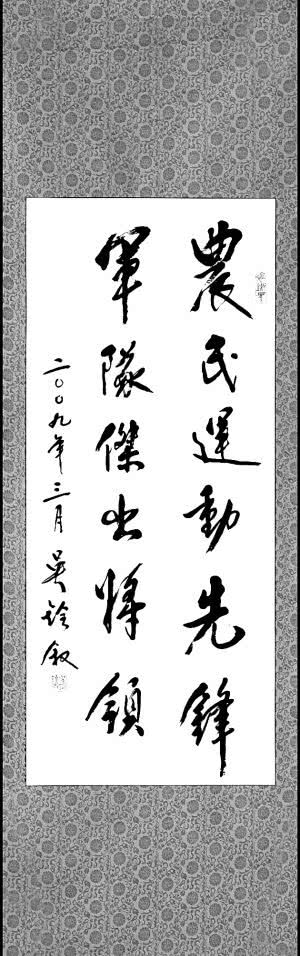 農民運動先鋒
軍隊傑出將領
二〇〇九年三月 吳銓敘